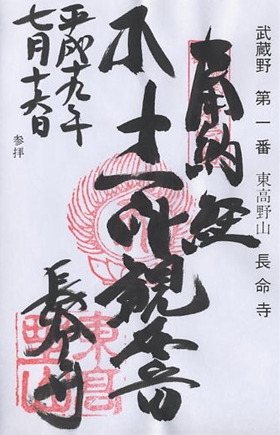 武蔵野 第一番 東高野山 長命寺
奉納経
十一面観世音
長命寺
平成十九年
七月十六日
参拝
東高
野山